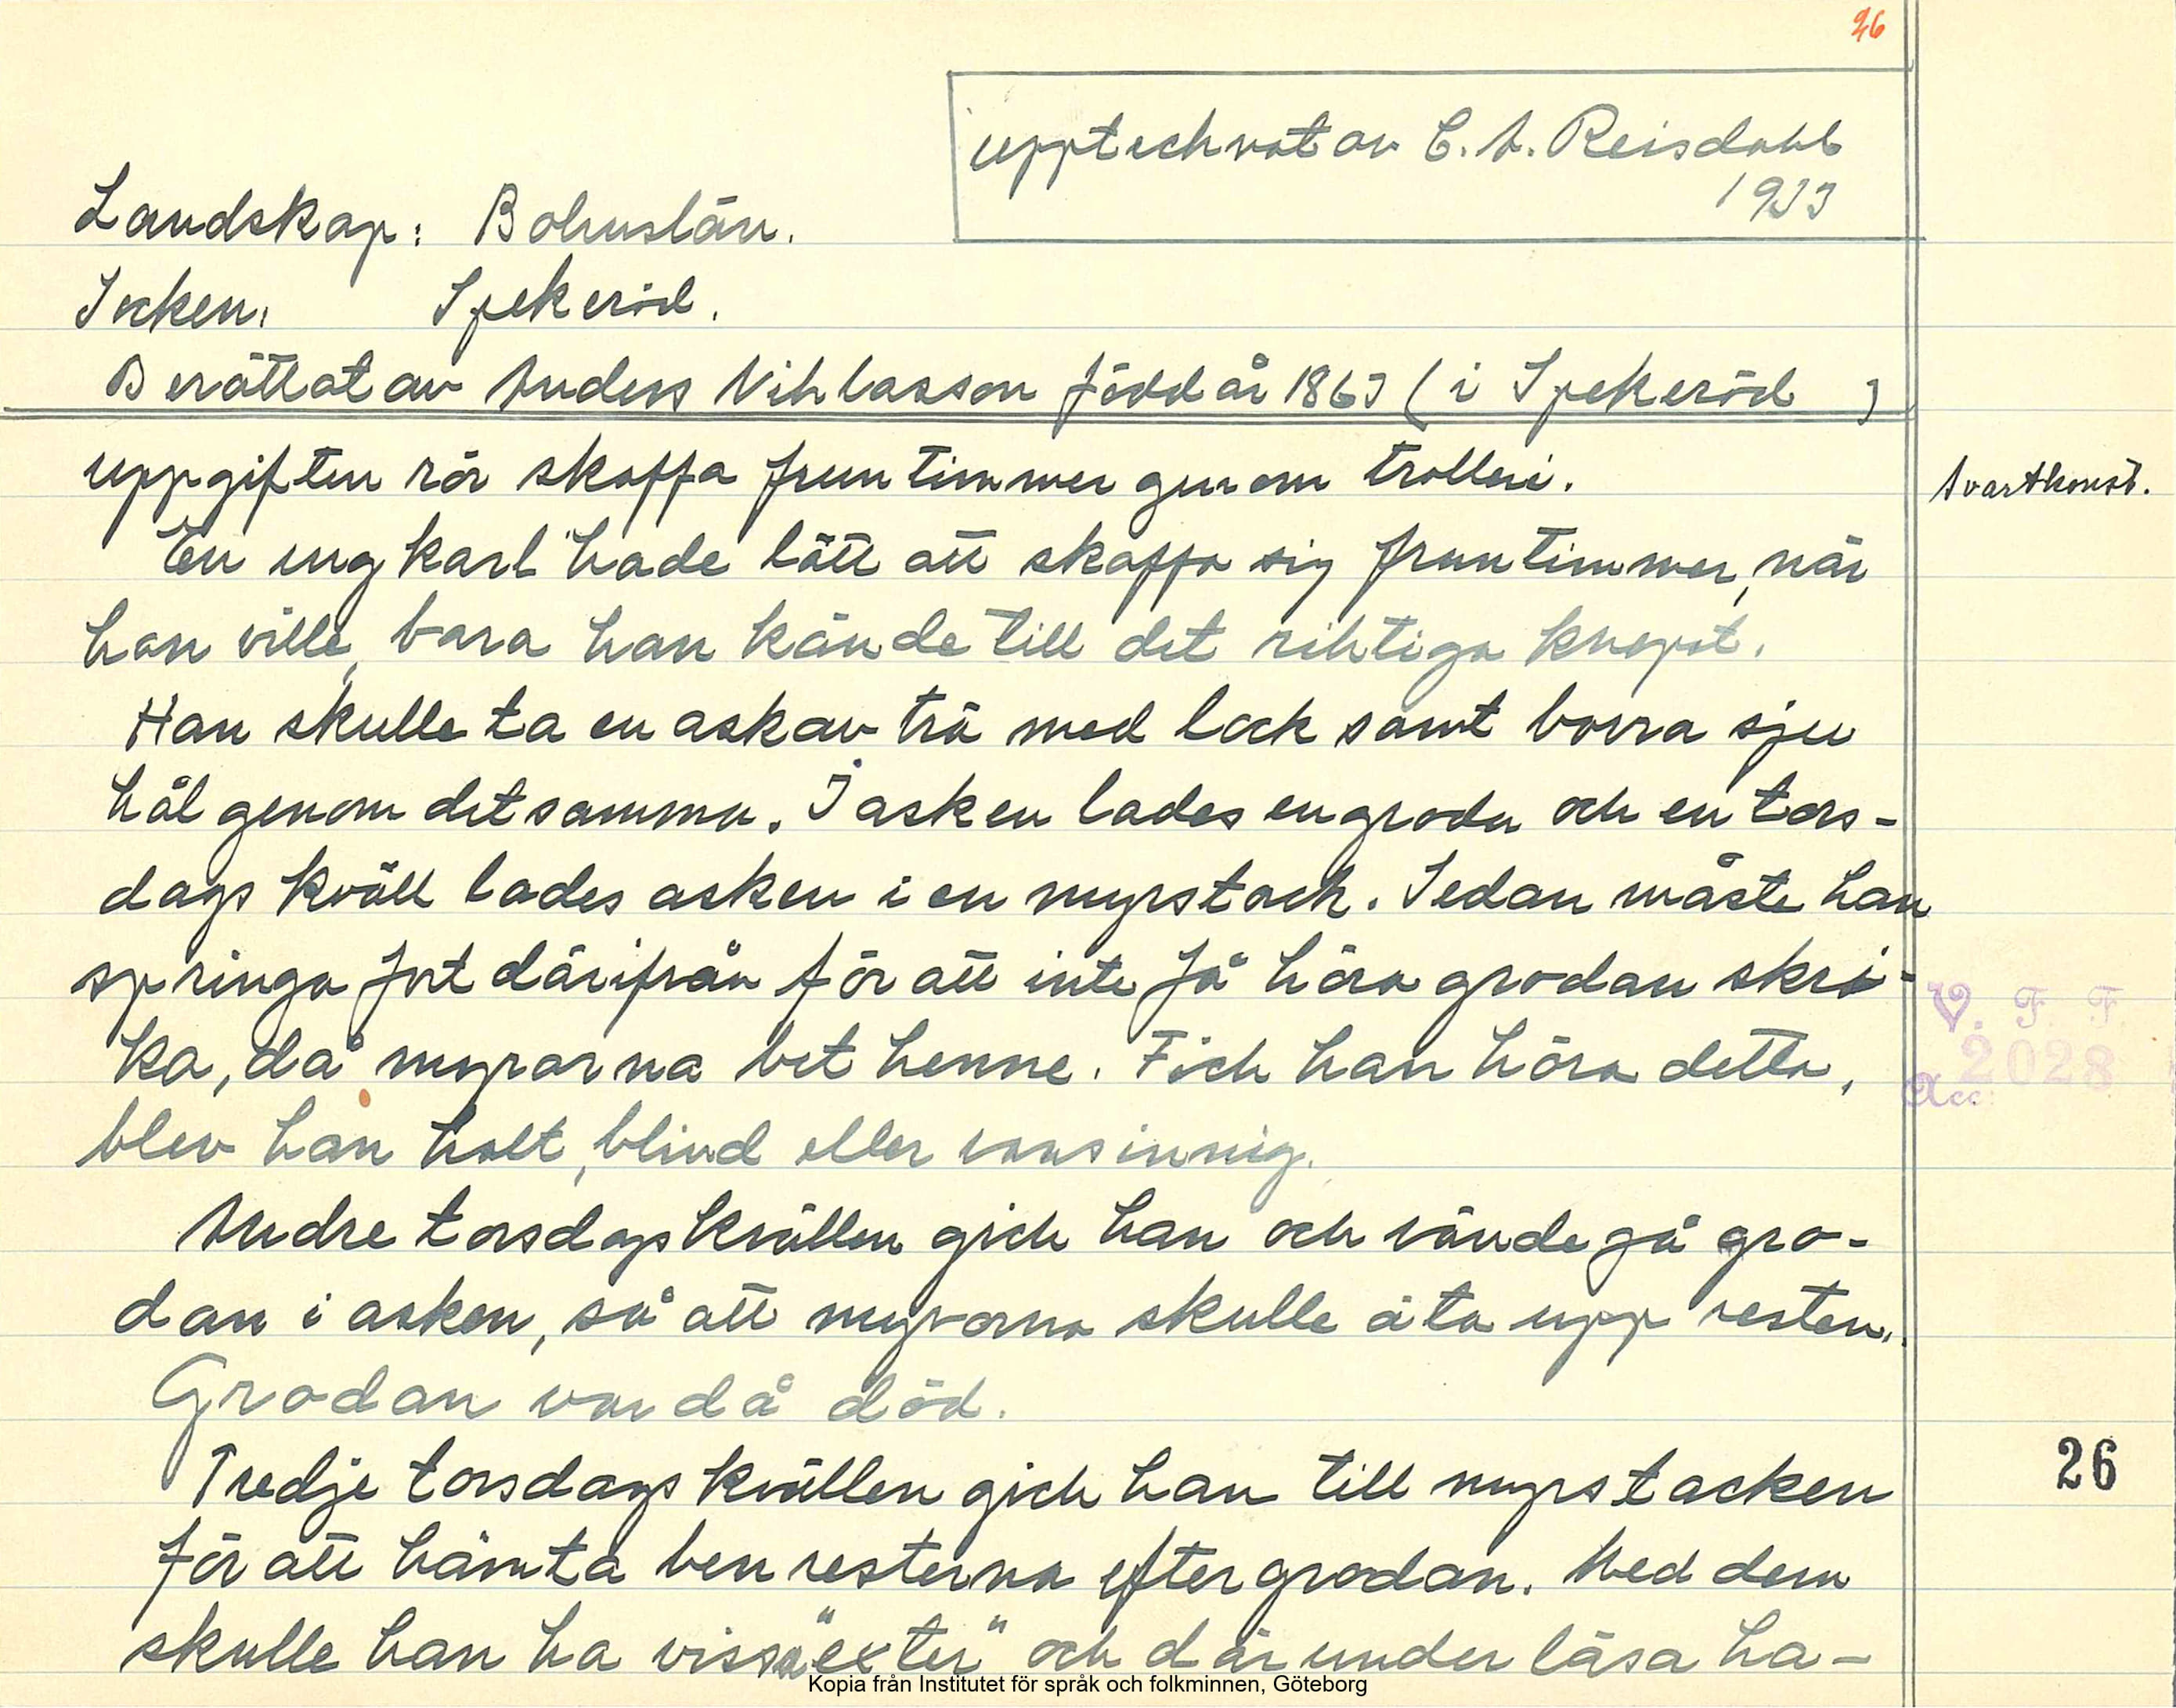 26
upptecknat av C. A. Reisdahl
1933
Landskap: Bohuslän.
Socken: Spekeröd.
Berättat av Anders Niklasson född år 1863 (i Spekeröd )
uppgiften rör skaffa fruntimmer genom trolleri.
Svartkonst.
En ung karl hade lätt att skaffa sig fruntimmer, när
han ville, bara han kände till det riktiga knepet.
Han skulle ta en ask av trä med lock samt borra sju
hål genom detsamma. I asken lades en groda och en tors-
dags kväll lades asken i en myrstack. Sedan måste han
springa fort därifrån för att inte få höra grodan skri-
ka, då myrorna bet henne. Fick han höra detta,
blev han halt, blind eller vansinnig.
V. F. F.
2028
Acc:
Andre torsdagskvällen gick han och vände på gro-
dan i asken, så att myrorna skulle äta upp resten.
Grodan var då död.
Tredje torsdagskvällen gick han till myrstacken
26
för att hämta benresterna efter grodan. Med dem
skulle han ha vissa "exter" och därunder läsa ha-
Kopia från Institutet för språk och folkminnen, Göteborg